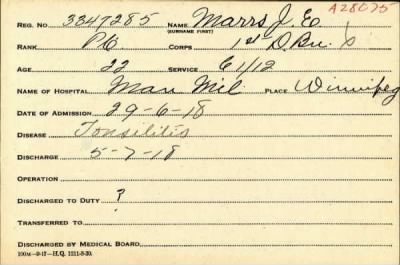 A28075
REG. NO. 3347285 NAME Marrs J. Eo.
(SURNAME FIRST)
RANK Pte CORPS 1st D. Bn.
AGE 22 SERVICE 61/12
NAME OF HOSPITAL Man Mil PLACE Winnipeg
DATE OF ADMISSION 29-6-18
DISEASE Tonsilitis
DISCHARGE 5-7-18
OPERATION
DISCHARGED TO DUTY ?
TRANSFERRED TO
DISCHARGED BY MEDICAL BOARD
100M-9-17-H.Q. 1211-8-20.